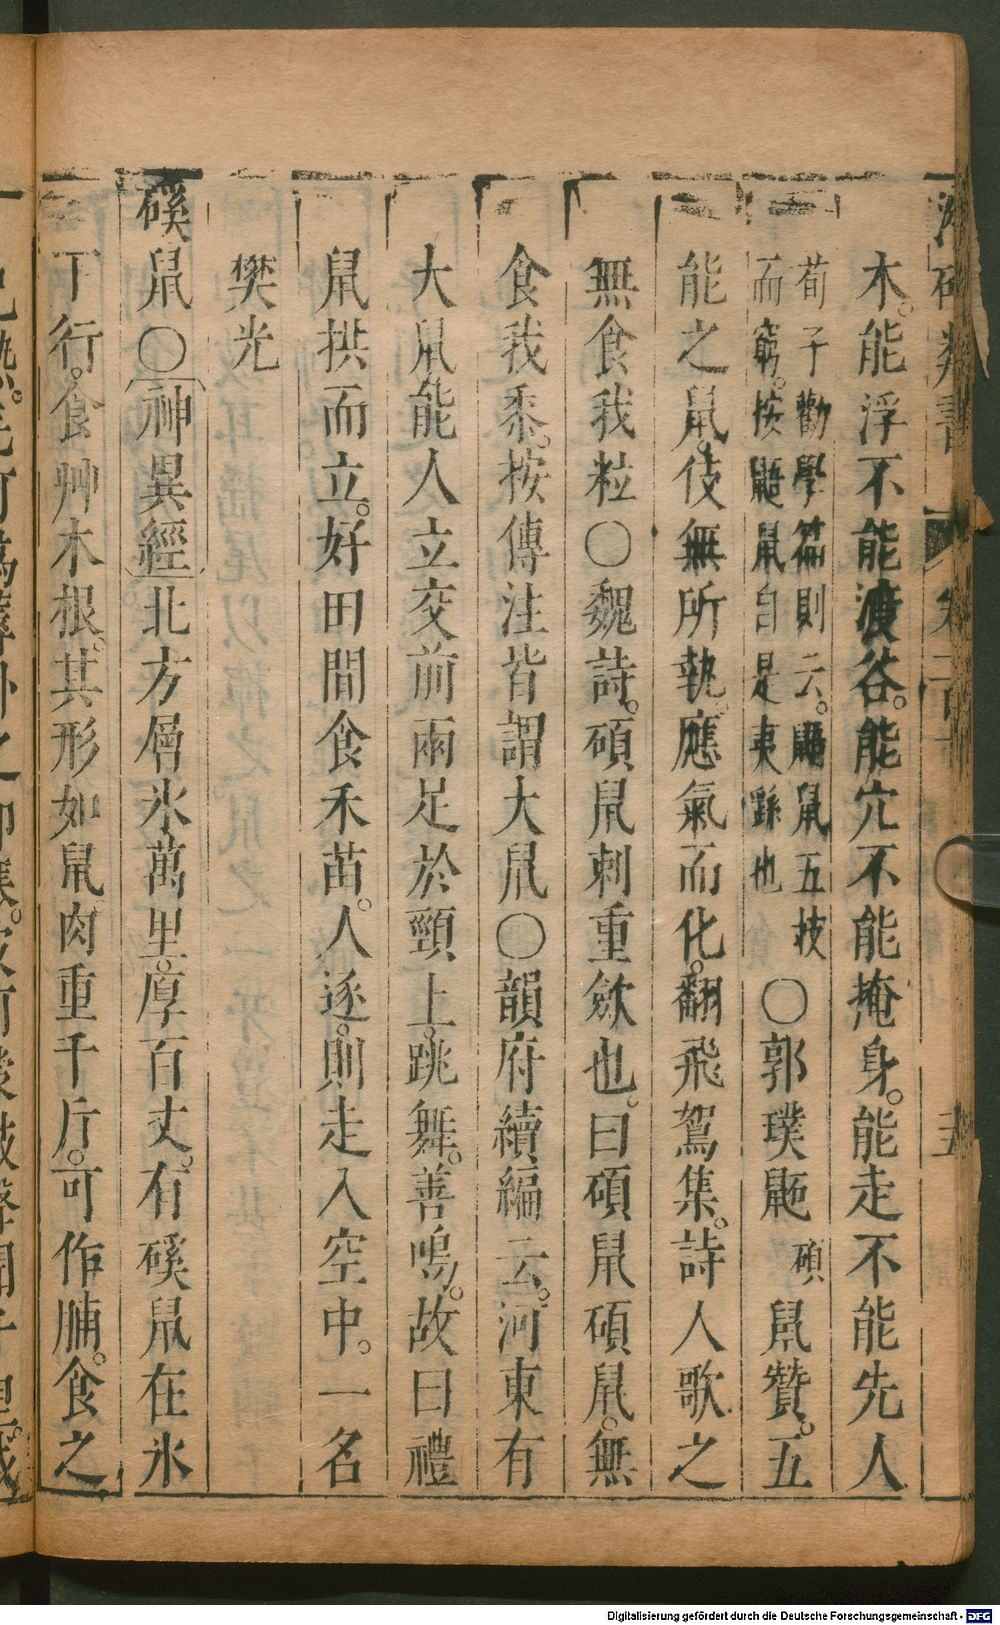 木。能浮不能渡谷。能穴不能掩身。能走不能先人
荀子勸學篇則云。鼫鼠五技
而窮。按鼫鼠自是夷
也
〇郭璞鼫
碩
鼠贊。五
能之鼠。伎無所執。應氣而化。翻飛鴐集。詩人歌之
無食我粒〇魏詩。碩鼠刺重斂也。曰碩鼠碩鼠。無
食我黍。按傳注皆謂大鼠〇韻府續編云。河東有
大鼠能人立交前兩足於頸上。跳舞。善鳴。故曰禮
鼠拱而立。好田間食禾苗。人逐。則走入空中。一名
樊光
磎鼠〇神異經北方層氷萬里。厚百丈。有磎鼠在氷
丅行。食艸木根。其形如鼠。肉重千斤。可作脯。食之
類書
五
Digitalisierung gefördert durch die Deutsche Forschungsgemeinschaft - DFG